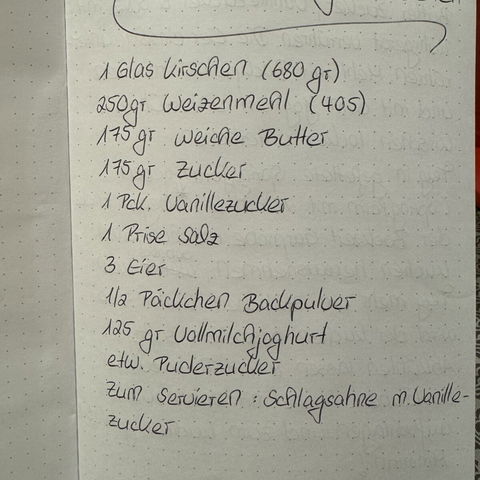 1 Glas Kirschen (680 gr)
250gr Weizenmehl (405)
175 gr weiche Butter
175 gr Zucker
1 Pck. Vanillezucker
1 Prise Salz
3 Eier
1/2 Päckchen Backpulver
125 gr Vollmilchjoghurt
etw. Puderzucker
zum servieren : Schlagsahne m. Vanille-
zucker